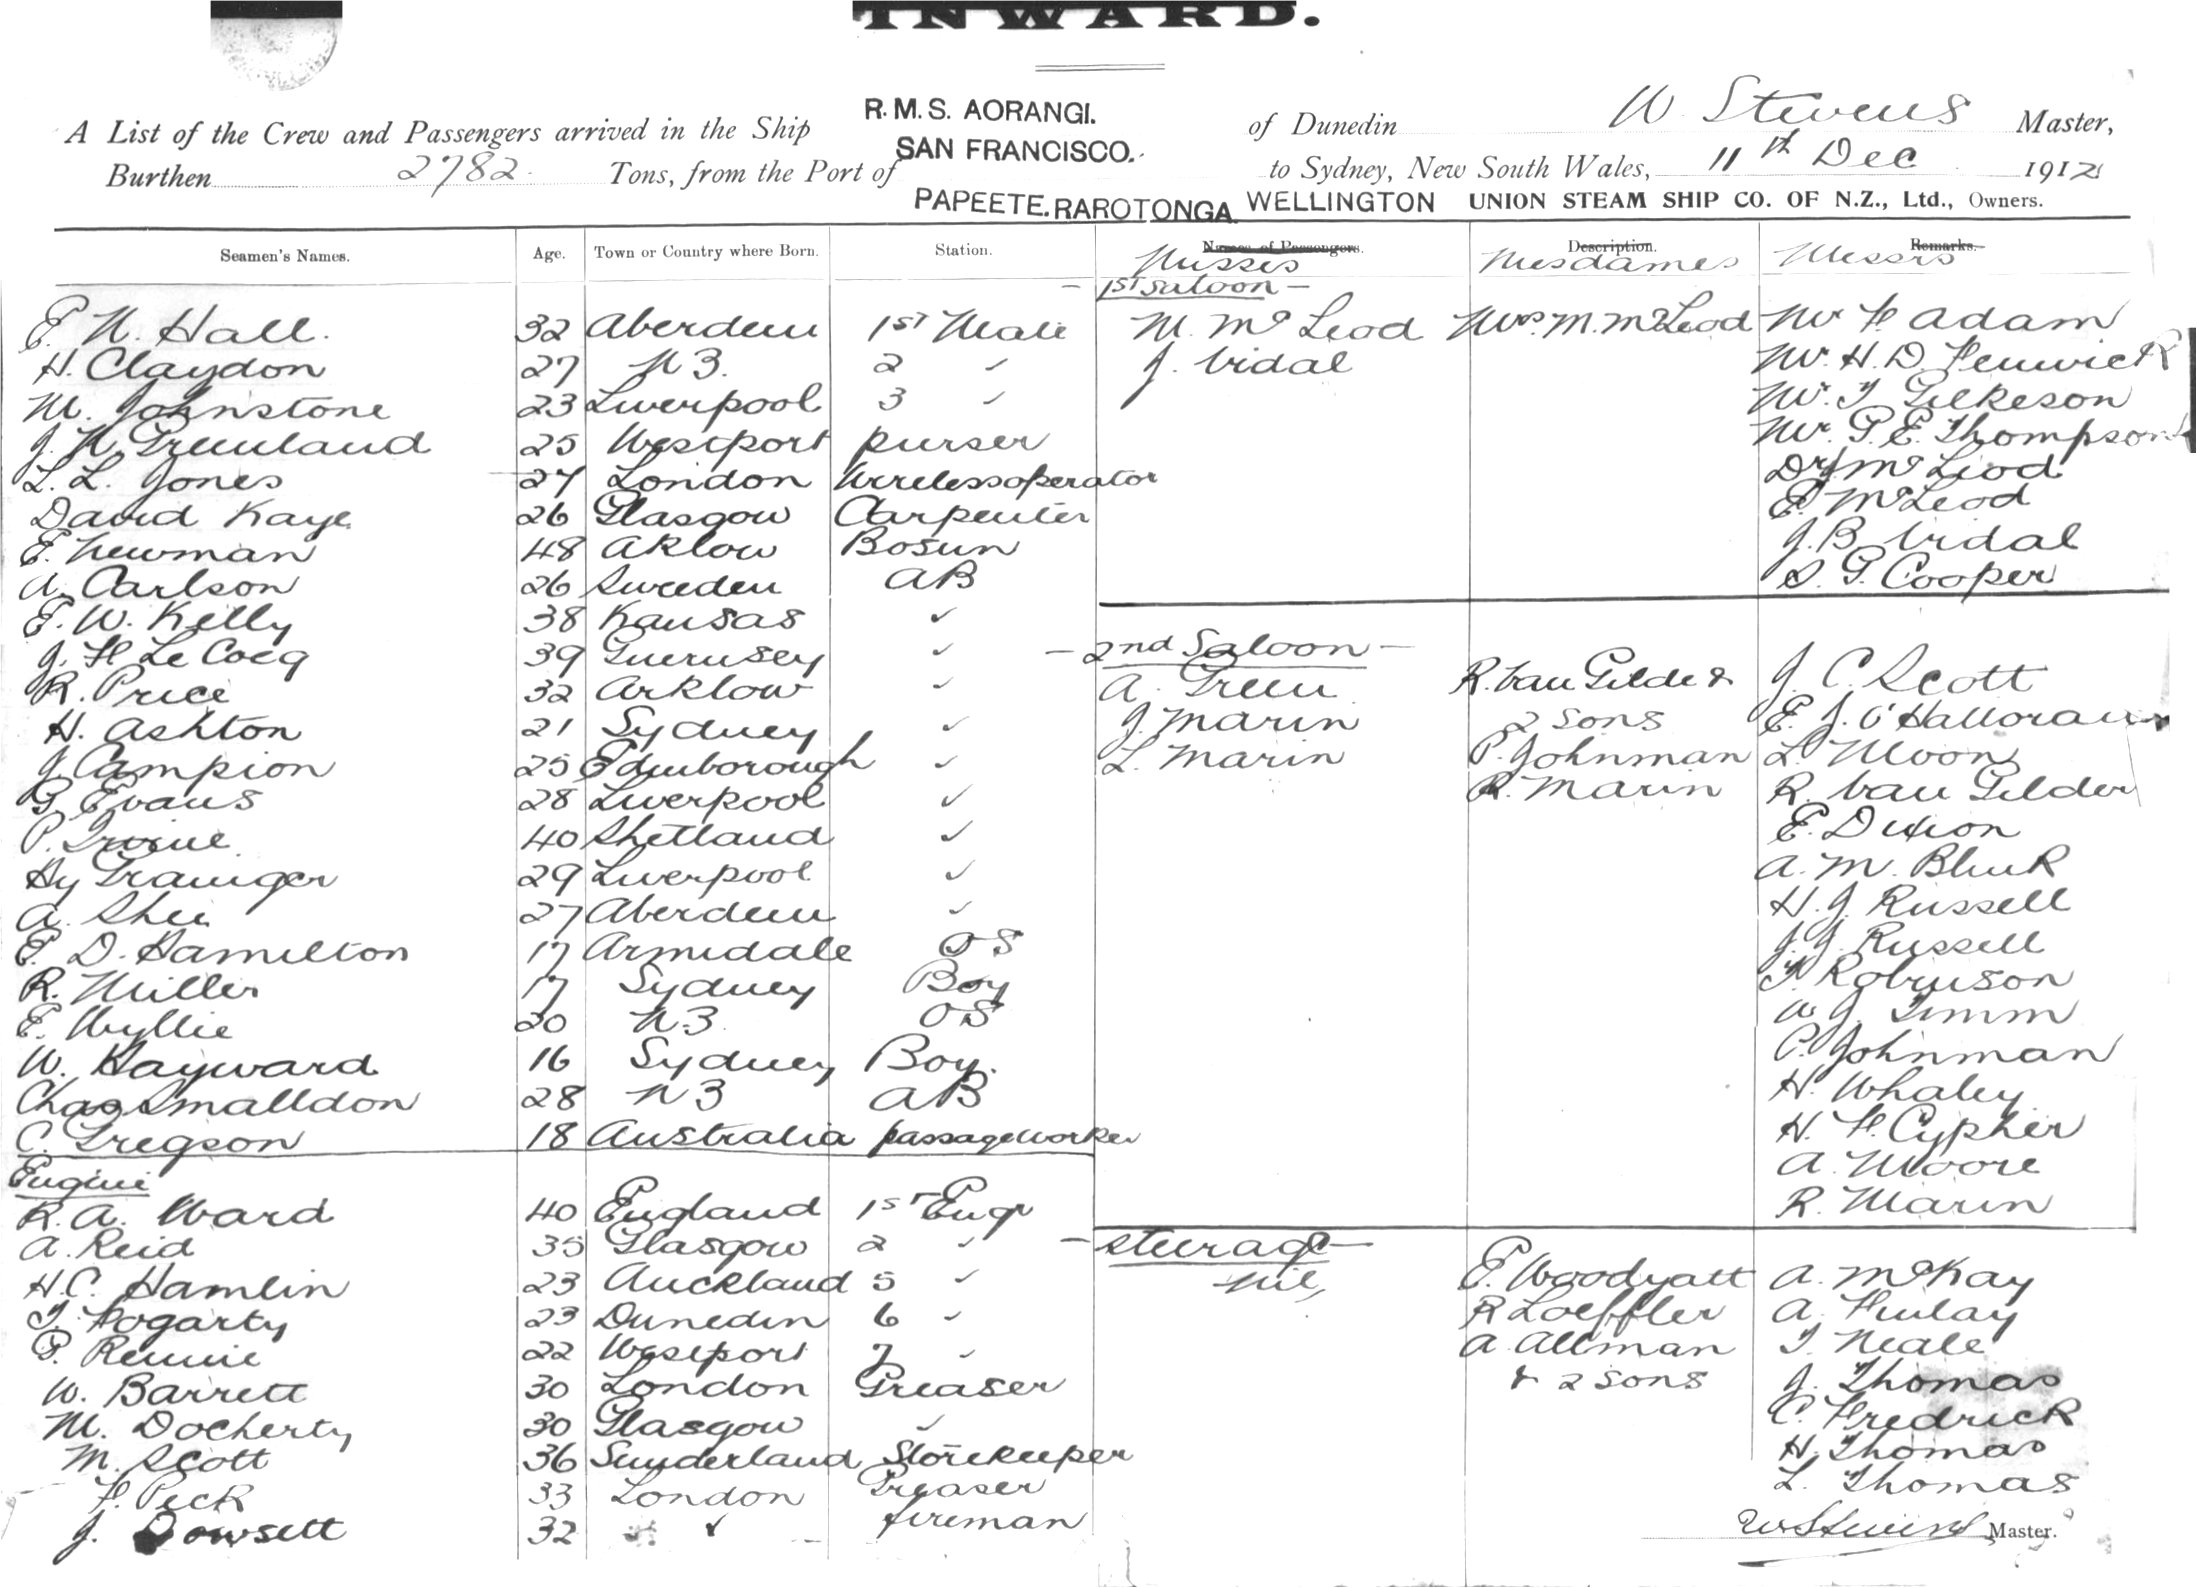 INWARD.
A List of the Crew and Passengers arrived in the Ship R.M.S. AORANGI. of Dunedin W Stevens Master,
Burthen 2782 Tons, from the Port of SAN FRANCISCO. to Sydney, New South Wales, 11th Dec 1912
PAPEETE. RAROTONGA WELLINGTON UNION STEAM SHIP CO. OF N.Z., Ltd., Owners.
Seamen's Names. Age. Town or Country where Born. Station.
E. N. Hall. 32 Aberdeen 1st Mate
H. Claydon 27 N3. 2 ✓
M. Johnstone 23 Liverpool 3 ✓
J. N. Greenland 25 Westport purser
L. L. Jones 27 London Wireless operator
David Kaye 26 Glasgow Carpenter
E. Newman 48 Aklow Bosun
A. Carlson 26 Sweeden AB
E. W. Kelly 38 Kansas ✓
J. F Le Cocq 39 Guernsey ✓
R. Price 32 Arklow ✓
H. Ashton 21 Sydney ✓
J Campion 25 Edinborough ✓
G. Evans 28 Liverpool ✓
P. Irvine 40 Shetland ✓
Hy Grainger 29 Liverpool ✓
A. Shee 27 Aberdeen ✓
E. D. Hamilton 17 Armidale OS
R. Miller 17 Sydney Boy
E. Wyllie 20 N3 OS
W. Hayward 16 Sydney Boy.
Chas Smalldon 28 N3 AB
C. Gregson 18 Australia passageworker
Engine
R. A. Ward 40 England 1st Engr
A. Reid 35 Glasgow 2 ✓
H.C. Hamlin 23 Auckland 5 ✓
T. Fogarty 23 Dunedin 6 ✓
G. Rennie 22 Westport 7 ✓
W. Barrett 30 London Greaser
M. Docherty 30 Glasgow ✓
M. Scott 36 Sunderland Storekeeper
F. Peck 33 London Greaser
J. Dowsett 32 ✓ fireman
Names of Passengers. Description. Remarks.
Misses Mesdames Messrs
- 1st Saloon -
M. McLeod Mrs. M. McLeod Mr F Adam
J. Vidal Mr. H. D. Fenwick
Mr. T Gilkeson
Mr. G. E. Thompson
Dr J McLeod
E. McLeod
J. B Vidal
S. G. Cooper
- 2nd Saloon -
A. Green R. van Gilder & J. C. Scott
J. Marin 2 sons E. J. O'Halloran
L. Marin P. Johnman L. Moon
R. Marin R. van Gilder
E. Dixon
A. M. Blink
H. J. Russell
J. J. Russell
F. Robinson
W J. Timm
P. Johnman
H. Whaley
H. F. Cypher
A. Moore
R. Marin
- Steerage -
nil E. Woodyatt A. McKay
R Loeffler A. Finlay
A Allman T Neale
& 2 sons J. Thomas
C. Fredrick
H. Thomas
L. Thomas
W Stevens Master.